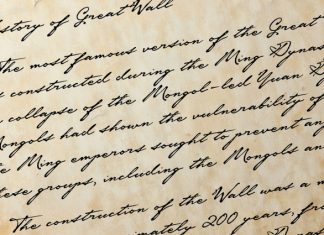 story of Great Wall
The most famous version of the Great
s constructed during the Ming Dynas
collapse of the Mongol-led Yuan D
ongols had shown the vulnerability of
e Ming emperors sought to prevent an
ese groups, including the Mongols an
The construction of the Wall was a m
imately 200 years, fr